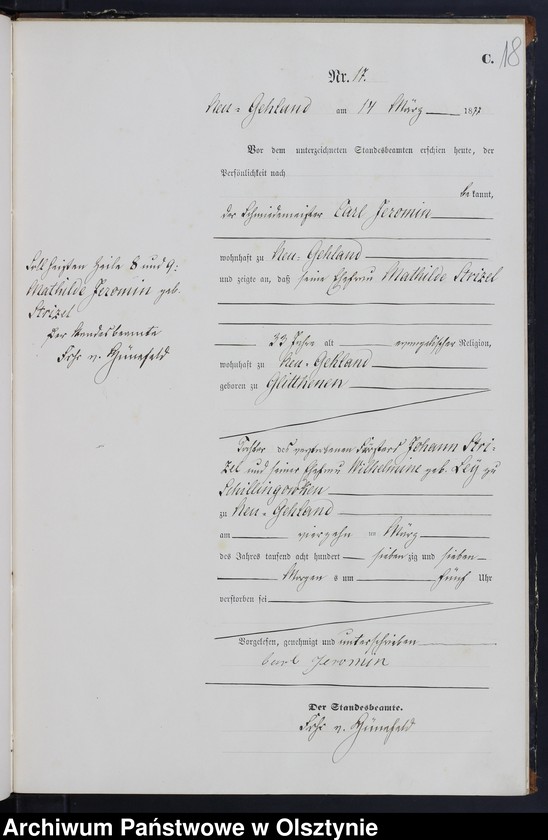 C. 18
Nr. 17.
Neu-Gehland am 14 März 1877
Vor dem unterzeichneten Standesbeamten erschien heute, der
Persönlichkeit nach
bekannt,
der Schmiedemeister Carl Jeromin
wohnhaft zu Neu-Gehland
und zeigte an, daß seine Ehefrau Mathilde Strizel
33 Jahre alt evangelischer Religion,
wohnhaft zu Neu-Gehland
geboren zu Glitthenen
Tochter des verstorbenen Försters Johann Stri-
zel und seiner Ehefrau Wilhelmine geb. Ley zu
Schillingowken
zu Neu-Gehland
am vierzehn ten März
des Jahres tausend acht hundert siebenzig und sieben
Morgens um fünf Uhr
verstorben sei
Vorgelesen, genehmigt und unterschrieben
Carl Jeromin
Der Standesbeamte.
Frhr v. Hünefeld
Soll heißen Zeile 8 und 9:
Mathilde Jeromin geb.
Strizel
Der Standesbeamte
Frhr v. Hünefeld
Archiwum Państwowe w Olsztynie